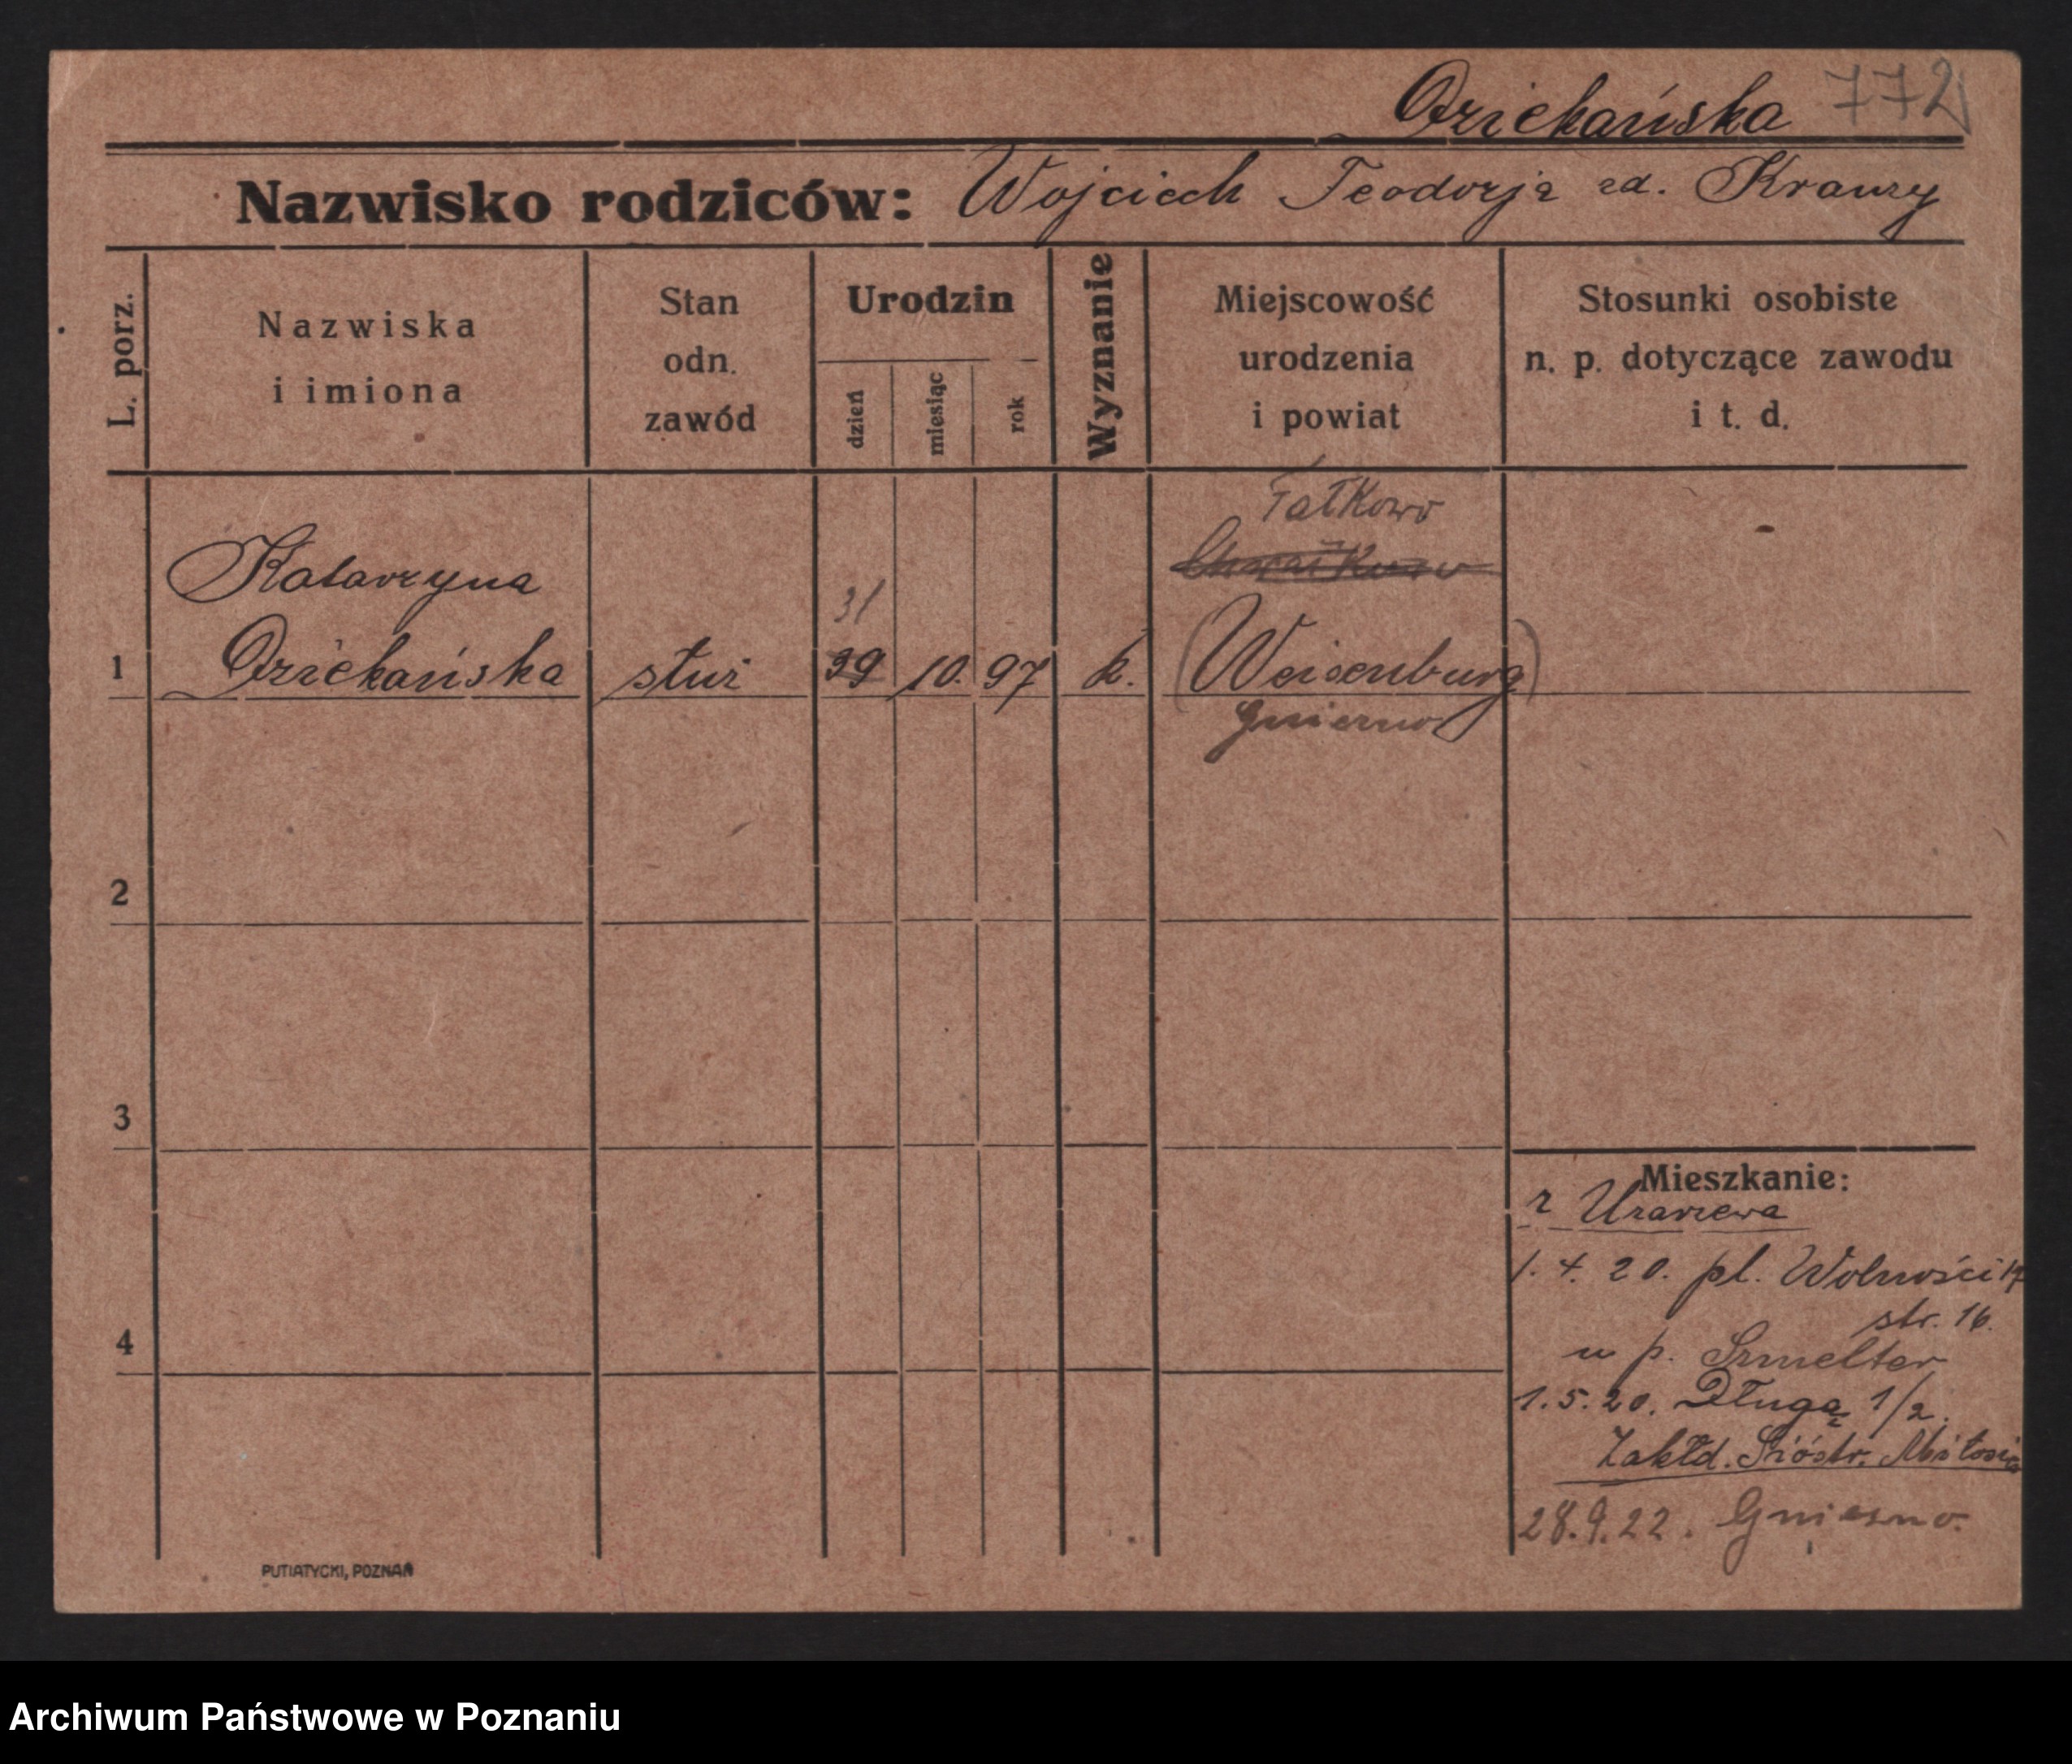 Dziekańska 772
Nazwisko rodziców: Wojciech Teodozja zd. Krauzy
L. porz.
Nazwiska
i imiona
Stan
odn.
zawód
Urodzin
dzień
miesiąc
rok
Wyznanie
Miejscowość
urodzenia
i powiat
Stosunki osobiste
n. p. dotyczące zawodu
i t. d.
Fałkowo
Katarzyna
31
1 Dziekańska służ 29 10. 97 k. (Weisenburg)
Gniezno
2
3
Mieszkanie:
z Uzarzewa
1. 4. 20. pl. Wolności 17
str. 16.
4
u p. Szmelter
1. 5. 20. Długa 1/2.
Zakłd. Sióstr. Miłosier
28. 9. 22. Gniezno.
PUTIATYCKI, POZNAŃ
Archiwum Państwowe w Poznaniu